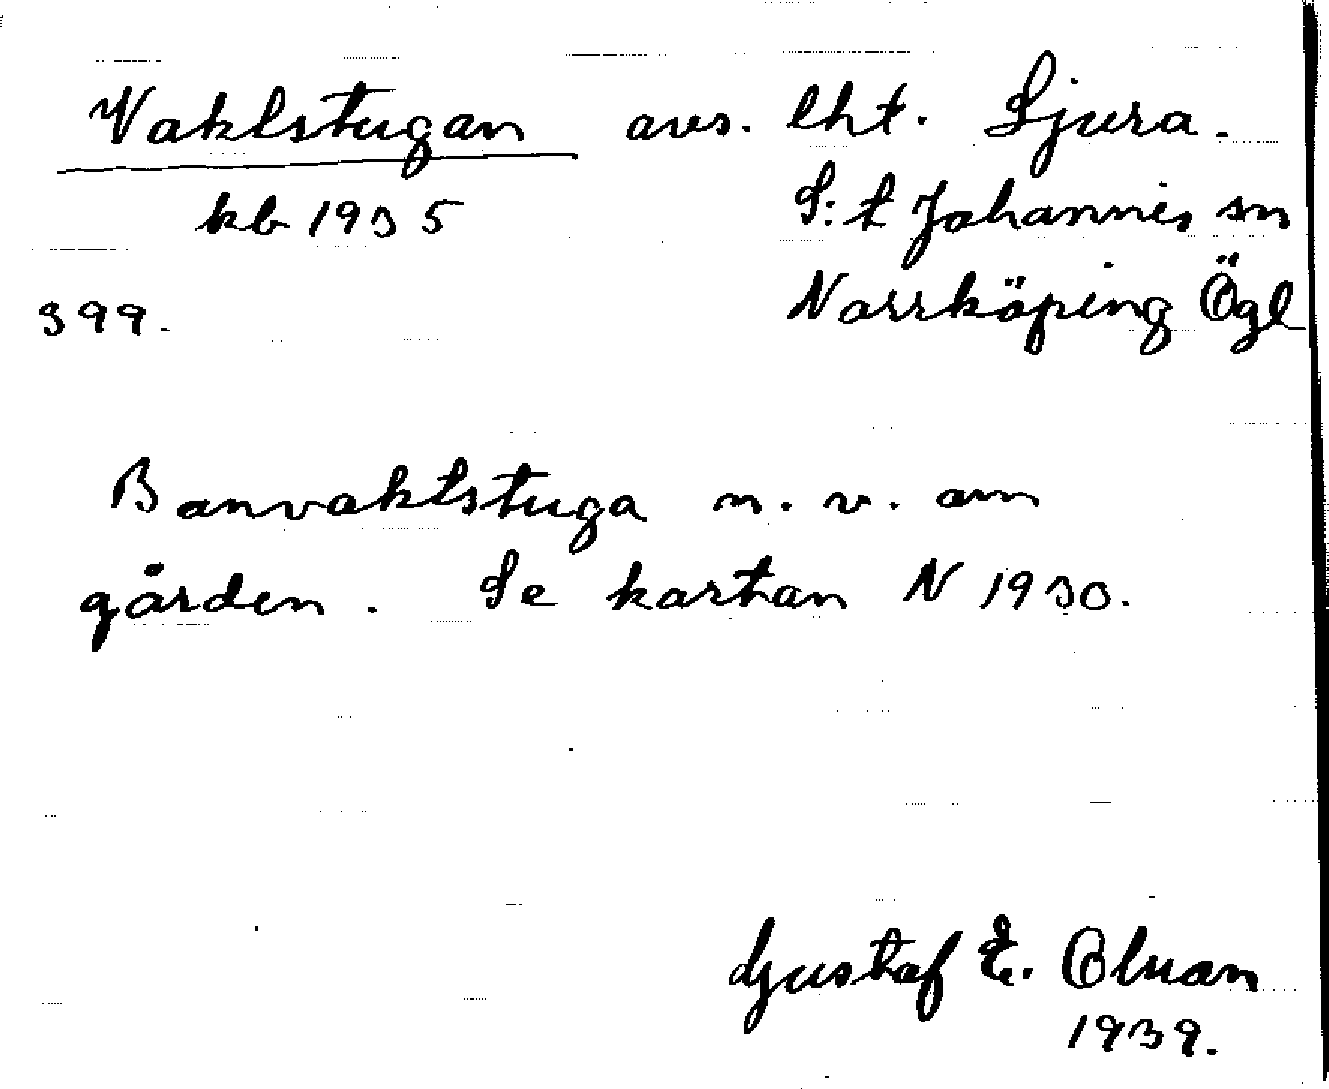 Vaktstugan avs. lht. Ljura.
kb 1935 S:t Johannes sn
399. Norrköping Ögl
Banvaktstuga n. v. om
gården. Se kartan N 1930.
Gustaf E. Olman
1939.